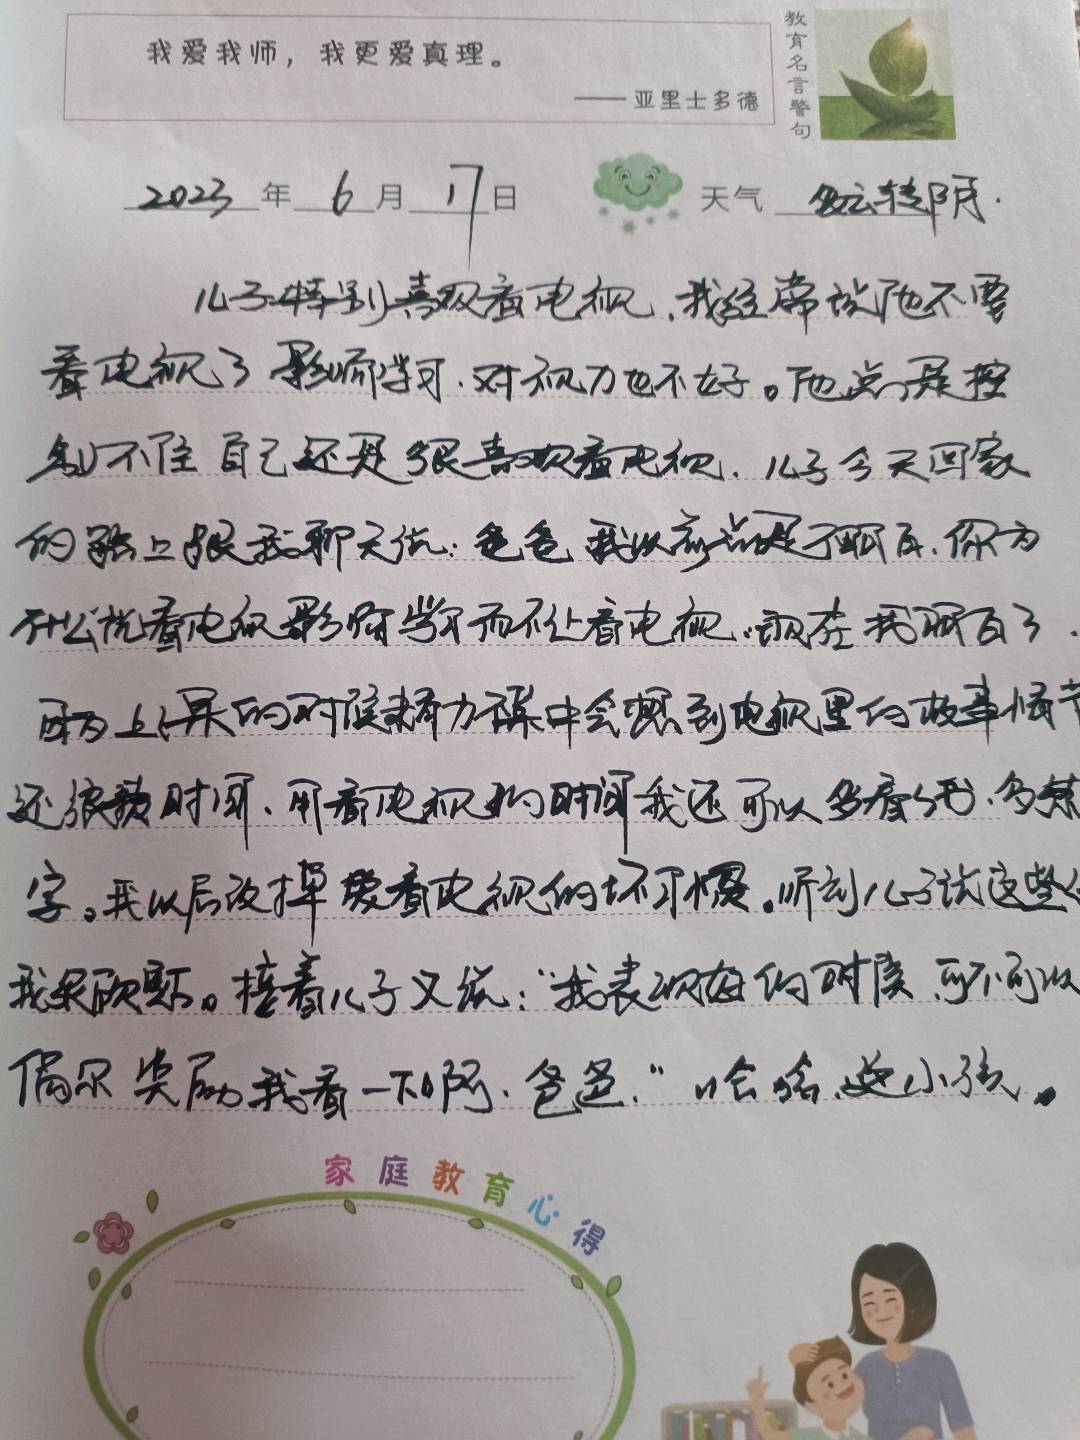 我爱我师，我更爱真理。
——亚里士多德
教育名言警句
2023年6月17日 天气 多云转阴.
儿子特别喜欢看电视，我经常说他不要
看电视了影响学习，对视力也不好。他总是控
制不住自己还是很喜欢看电视，儿子今天回家
的路上跟我聊天说：爸爸我以前总是不明白，你为
什么说看电视影响学习而不让看电视，现在我明白了，
因为上课的时候精力不集中会想到电视里的故事情节
还浪费时间，用看电视的时间我还可以多看书，多练
字。我以后改掉爱看电视的坏习惯。听到儿子说这些
我很欣慰。接着儿子又说：“我表现好的时候，可不可以
偶尔奖励我看一下啊，爸爸，”哈哈，这小孩。
家庭教育心得